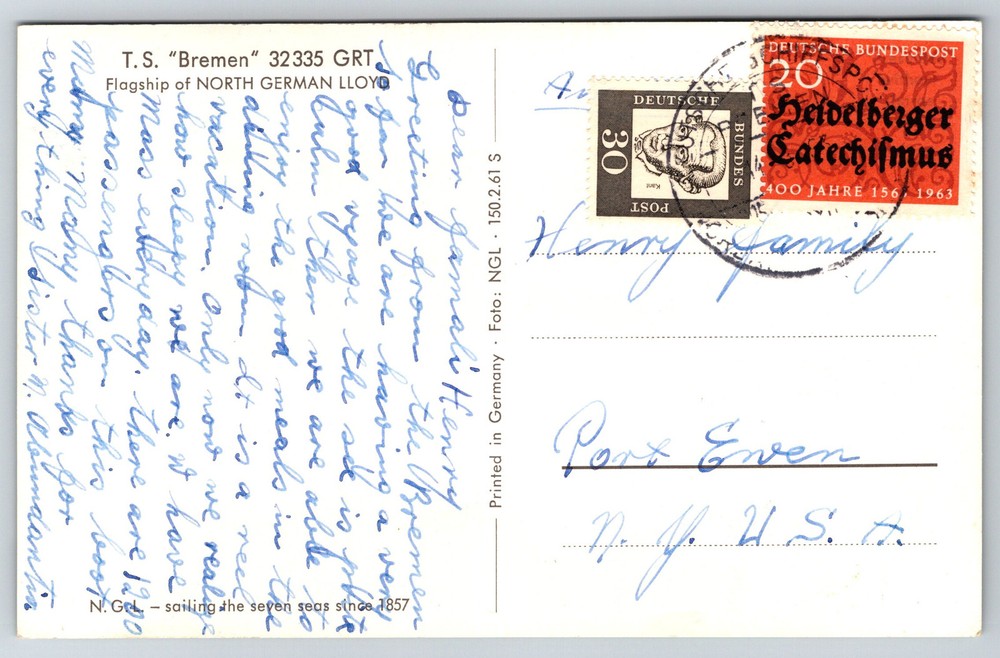 T. S. "Bremen" 32335 GRT
Flagship of NORTH GERMAN LLOYD
Dear famali Henry
Greeting from the Bremen
So far we are having a very
good voyage the sea is
calm then we are able to
enjoy the good meals in the
dining room It is a reel
vacation. Only now we realize
how sleepy we are. W have
Mass everyday. there are 1200
passenglrs on this boot
Many Many thanks for
every thing Sister M. Abundantia
N. G. L. – sailing the seven seas since 1857
Printed in Germany · Foto: NGL · 150.2.61 S
DEUTSCHE
BUNDES
POST
30
Kant
DEUTSCHE BUNDESPOST
20
Heidelberger
Catechismus
400 JAHRE 1563 1963
SCHIFFSPOST
BREMEN
Henry family
Port Ewen
N. Y. U. S. A.